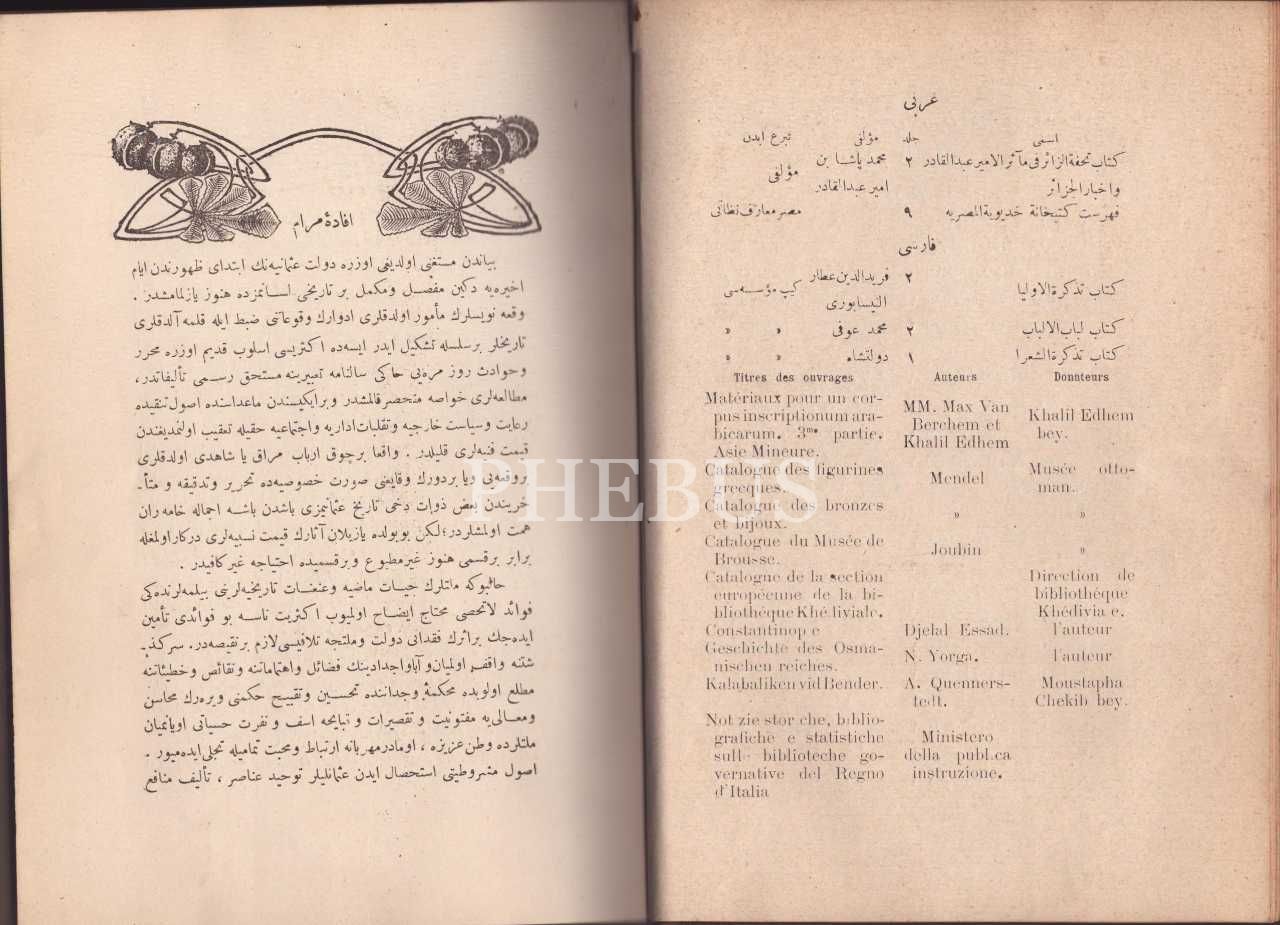 افادهٔ مرام
بیاندن مستغنی اولدیغی اوزره دولت عثمانیه‌نك ابتدای ظهورندن ایام
اخیره‌یه دکین مفصل ومکمل بر تاریخی لسانمزده هنوز یازلمامشدر .
وقعه نویسلرك مأمور اولدقلری ادوارك وقوعاتنی ضبط ایله قلمه آلدقلری
تاریخلر برسلسله تشکیل ایدر ایسه‌ده اکثریسی اسلوب قدیم اوزره محرر
وحوادث روز مره‌یی حاکی سالنامه تعبیرینه مستحق رسمی تألیفاتدر،
مطالعه‌لری خواصه منحصر قالمشدر وبرایکیسندن ماعداسنده اصول تنقیده
رعایت وسیاست خارجیه وتقلبات اداریه واجتماعیه حقیله تعقیب اولنمدیغندن
قیمت فنیه‌لری قلیلدر . واقعا برچوق ارباب مراق یا شاهدی اولدقلری
بروقعه‌یی ویا بردورك وقایعنی صورت خصوصیه‌ده تحریر وتدقیقه و متأ-
خریندن بعض ذوات دخی تاریخ عثمانیمزی باشدن باشه اجماله خامه ران
همت اولمشلردر؛ لکن بویولده یازیلان آثارك قیمت نسبیه‌لری درکار اولمغله
برابر برقسمی هنوز غیرمطبوع وبرقسمیده احتیاجه غیرکافیدر .
حالبوکه ملتلرك حیات ماضیه وعنعنات تاریخیه‌لرینی بیلمه‌لرنده‌کی
فوائد لاتحصی محتاج ایضاح اولمیوب اکثریت ناسه بو فوائدی تأمین
ایده‌جك براثرك فقدانی دولت وملتجه تلافیسی لازم برنقیصه‌در. سرکذ-
شتنه واقف اولمیان وآباواجدادینك فضائل واهتماماتنه ونقائص وخطیئاتنه
مطلع اولوبده محکمهٔ وجداننده تحسین وتقبیح حکمنی ویره‌رك محاسن
ومعالی‌یه مفتونیت و تقصیرات و قبایحه اسف و نفرت حسیاتی اویانمیان
ملتلرده وطن عزیزه ، اومادر مهربانه ارتباط ومحبت تمامیله تجلی ایده‌میور .
اصول مشروطیتی استحصال ایدن عثمانلیلر توحید عناصر ، تألیف منافع
عربی
اسمی جلد مؤلفی تبرع ایدن
کتاب تحفة الزائر فی مآثر الامیر عبدالقادر ۲ محمد پاشا بن مؤلفی
واخبار الجزائر امیر عبدالقادر
فهرست کتبخانة خدیویة المصریه ۹ مصر معارف نظاتی
فارسی
کتاب تذکرة الاولیا ۲ فریدالدین عطار کیپ مؤسسه‌سی
النیسابوری
کتاب لباب الالباب ۲ محمد عوفی » »
کتاب تذکرة الشعرا ۱ دولتشاه » »
Titres des ouvrages Auteurs Donateurs
Matériaux pour un cor-
pus inscriptionum ara-
bicarum. 3me partie.
Asie Mineure.
MM. Max Van
Berchem et
Khalil Edhem
Khalil Edhem
bey.
Catalogue des figurines
grecques.
Mendel
Musée otto-
man.
Catalogue des bronzes
et bijoux.
» »
Catalogue du Musée de
Brousse.
Joubin »
Catalogue de la section
européenne de la bi-
bliothéque Khédiviale.
Direction de
bibliothéque
Khédivia e.
Constantinop e Djelal Essad. l'auteur
Geschichte des Osma-
nischen reiches.
N. Yorga. l'auteur
Kalabaliken vid Bender.
A. Quenners-
tedt.
Moustapha
Chekib bey.
Not zie stor che, biblio-
grafiche e statistiche
sulle biblioteche go-
vernative del Regno
d'Italia
Ministero
della publ.ca
instruzione.
PHEBUS